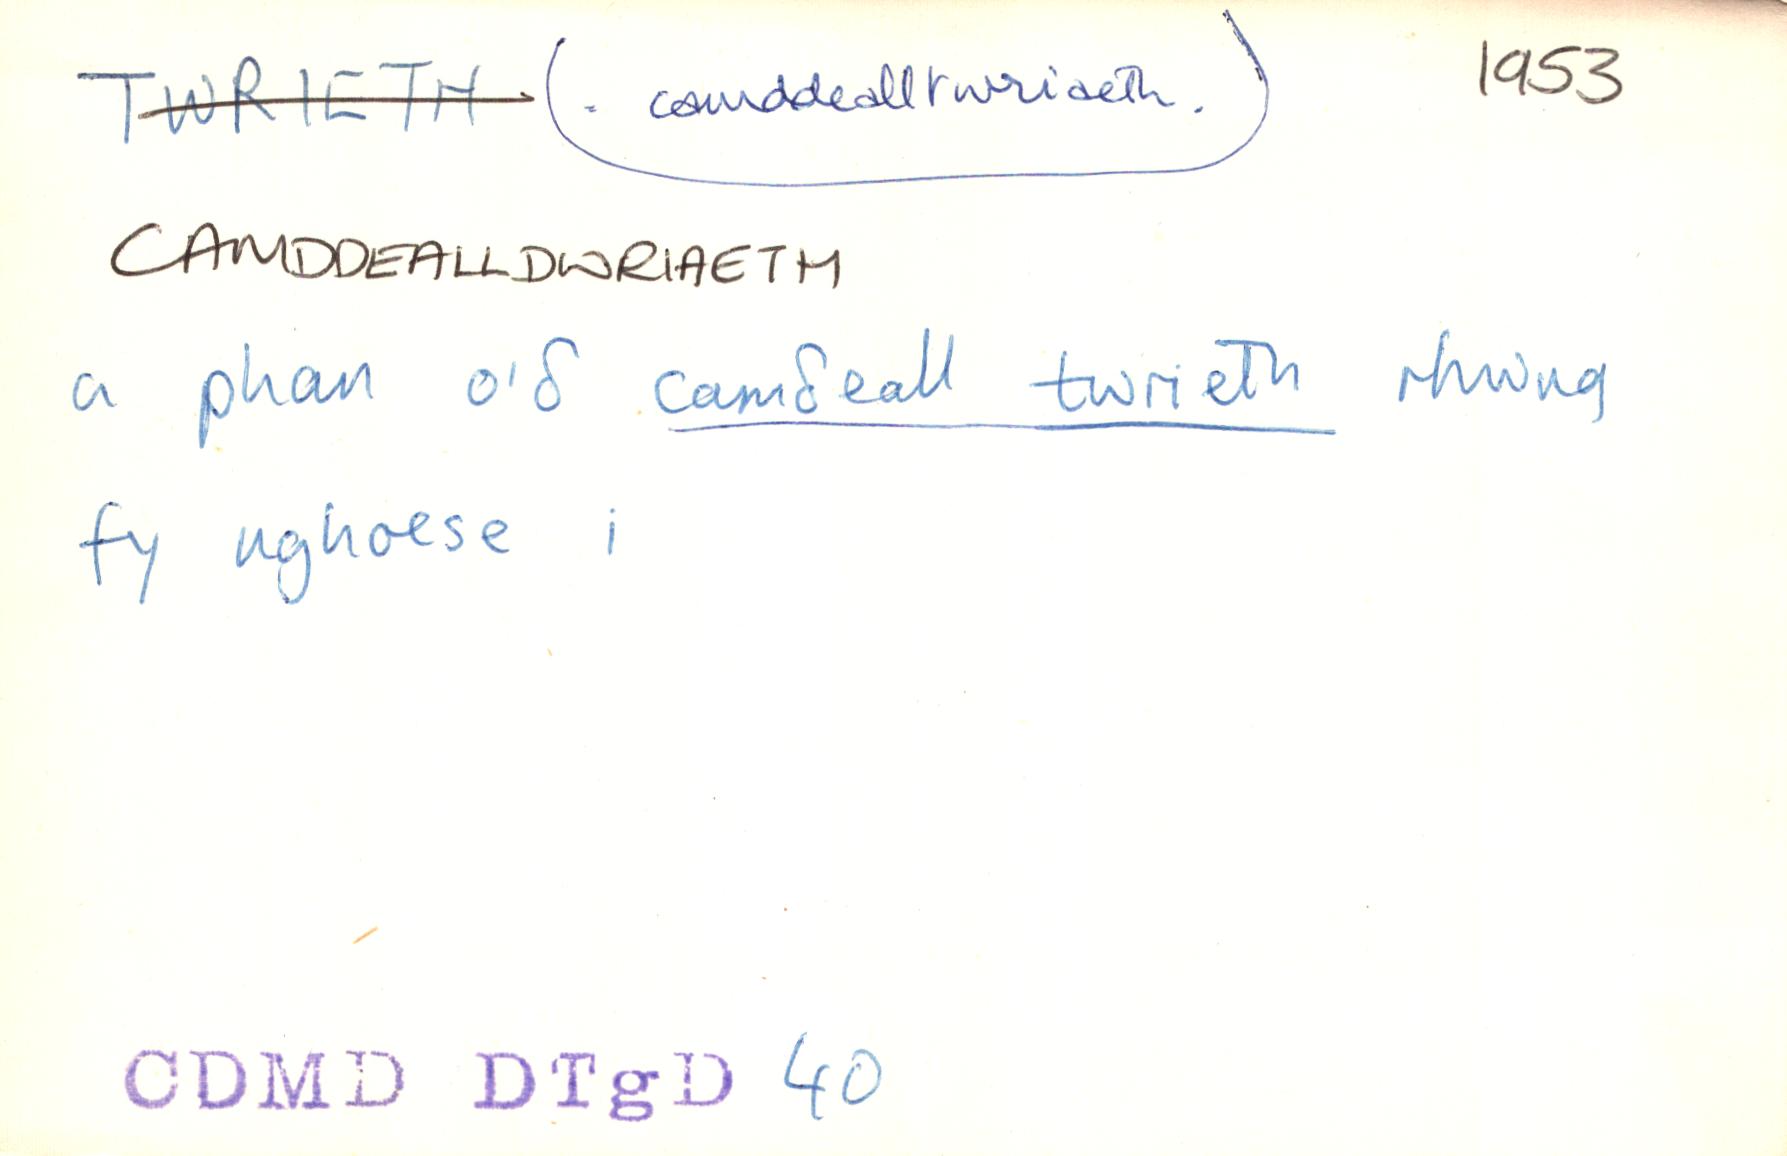 TWRIETH (. camddealltwriaeth.) 1953
CAMDDEALLDWRIAETH
a phan o'δ camδeall twrieth rhwng
fy nghoese i
CDMD DTgD 40